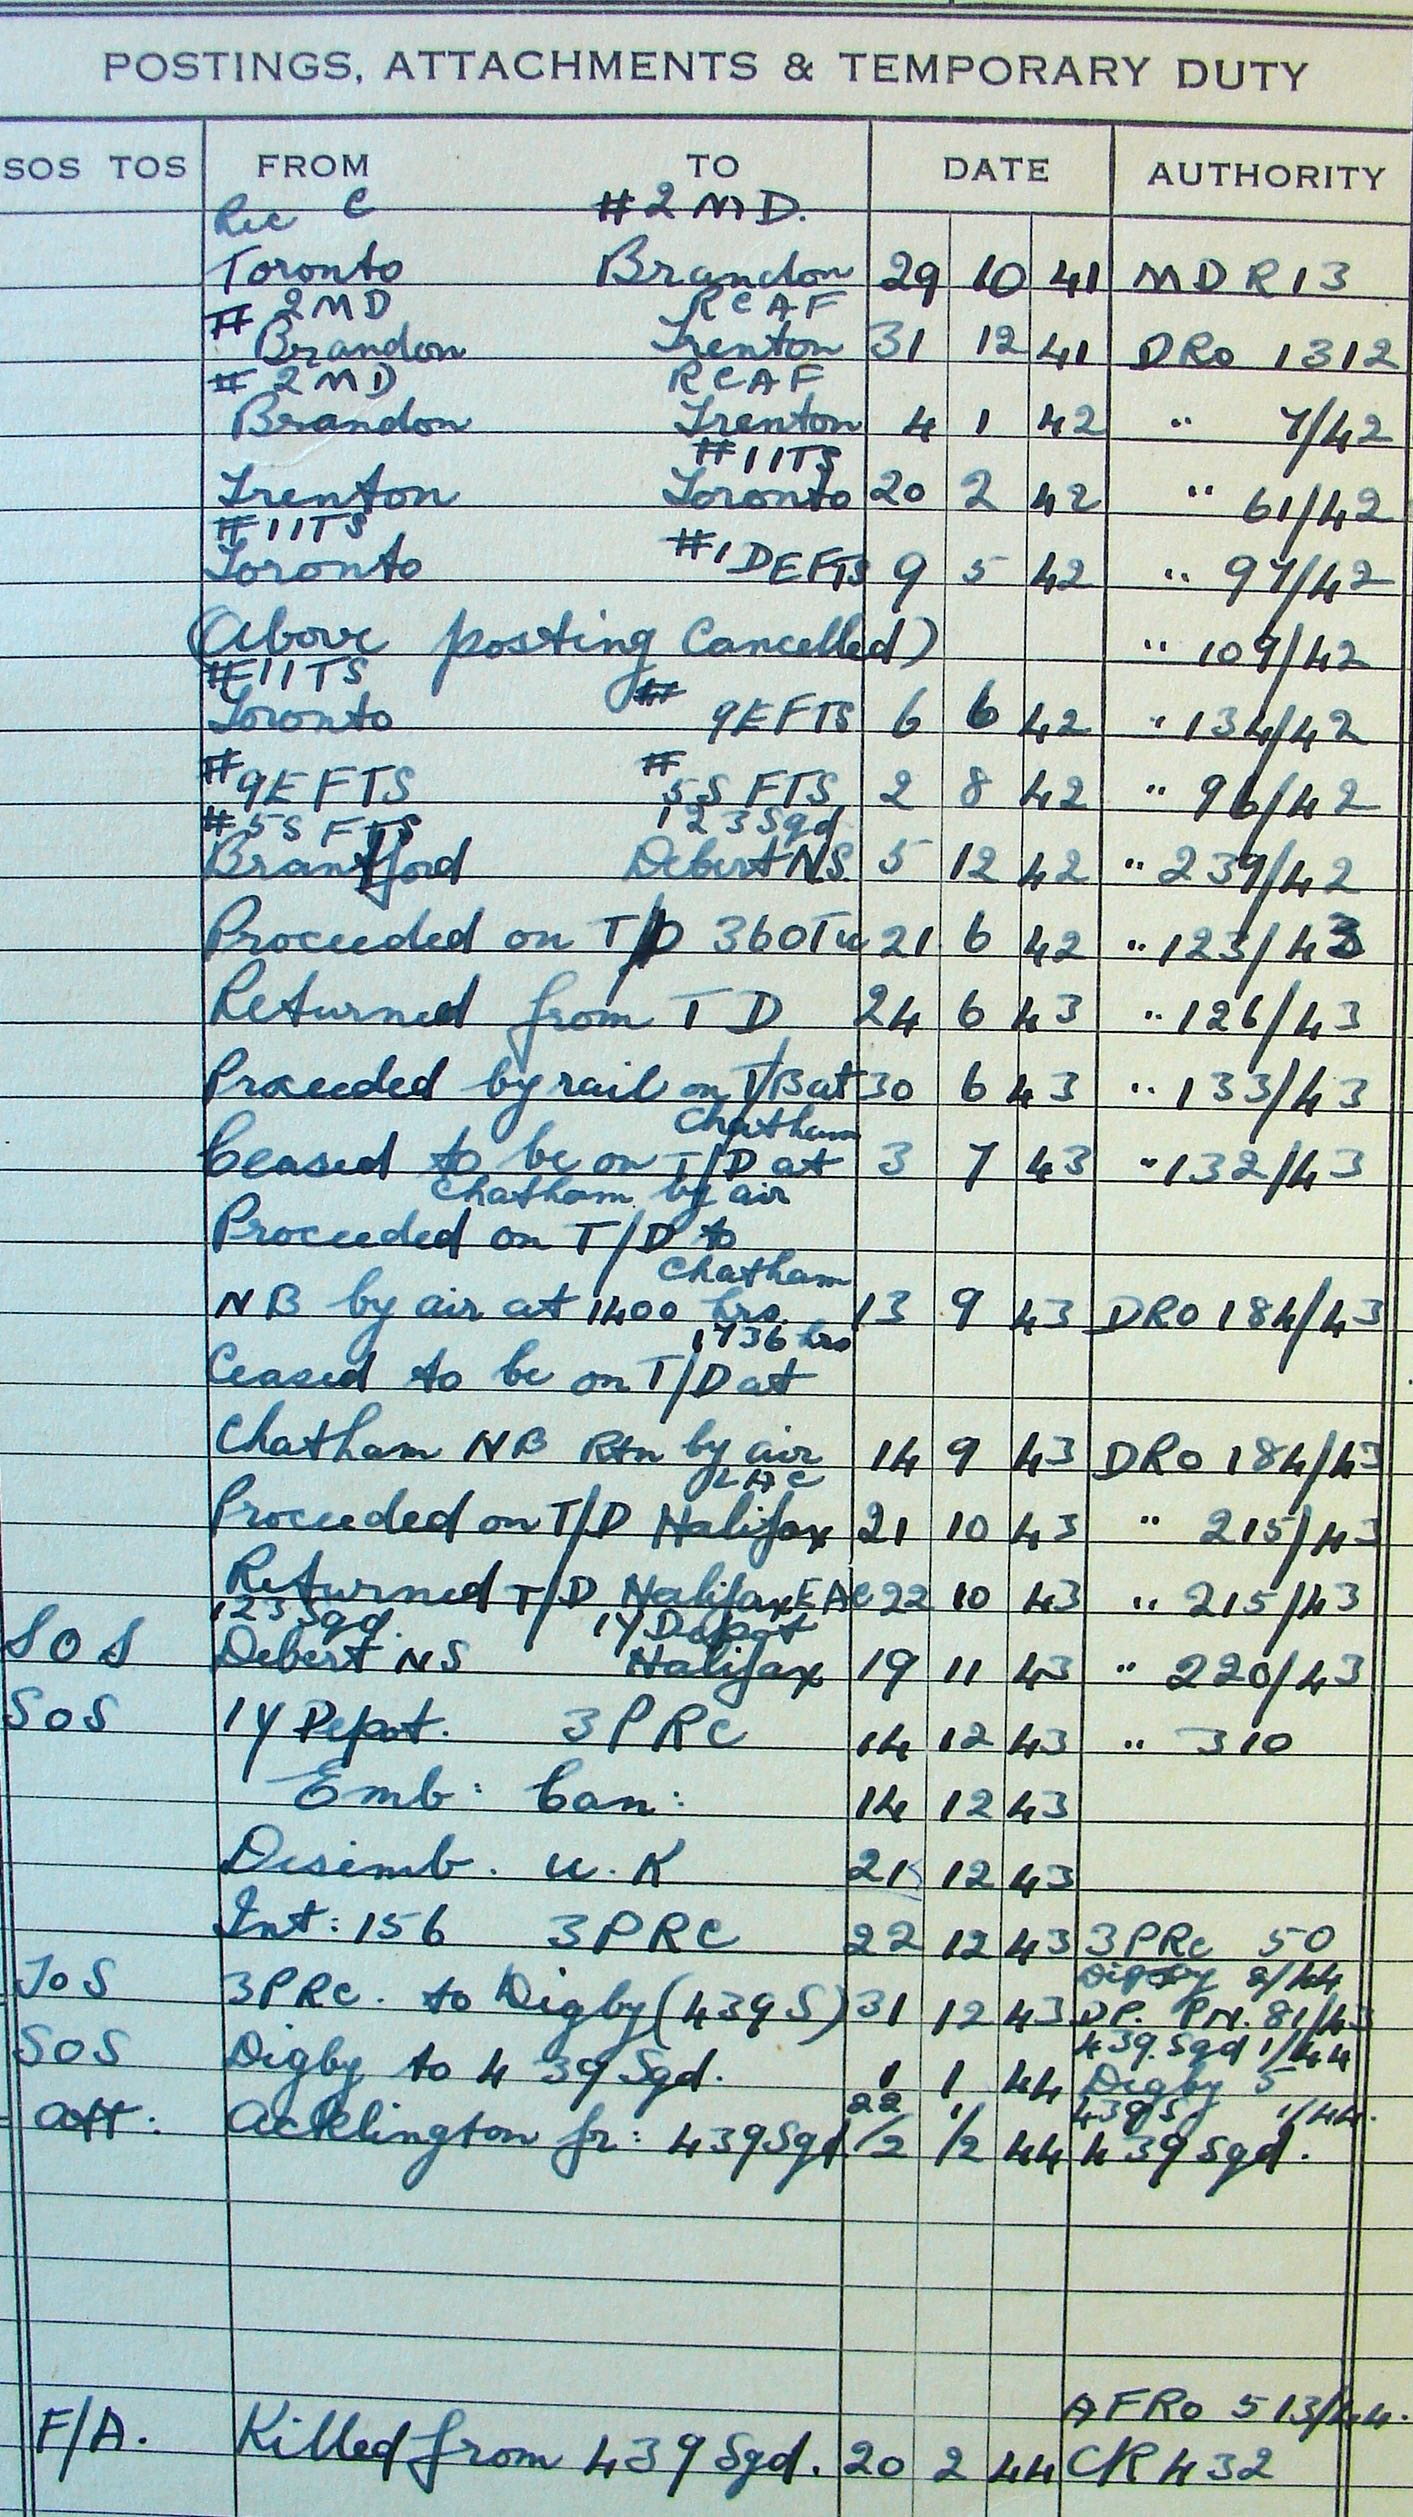 POSTINGS, ATTACHMENTS & TEMPORARY DUTY
SOS TOS FROM TO DATE AUTHORITY
Rec C #2 MD.
Toronto Brandon 29 10 41 MDR 13
# 2MD RCAF
Brandon Trenton 31 12 41 DRO 1312
# 2MD RCAF
Brandon Trenton 4 1 42 " 7/42
#1 ITS
Trenton Toronto 20 2 42 " 61/42
#1 ITS
Toronto #1 DEFTS 9 5 42 " 97/42
(Above posting Cancelled) " 109/42
#1 ITS
Toronto # 9EFTS 6 6 42 " 134/42
#9EFTS # 5S FTS 2 8 42 " 96/42
#5S FTS 123 Sqd
Brantford Debert NS. 5 12 42 " 239/42
Proceeded on T/D 36OTU 21 6 42 " 123/43
Returned from T D 24 6 43 " 126/43
Proceeded by rail on T/B at 30 6 43 " 133/43
Chatham
Ceased to be on T/D at 3 7 43 " 132/43
Chatham by air
Proceeded on T/D to
Chatham
NB by air at 1400 hrs. 13 9 43 DRO 184/43
1736 hrs
Ceased to be on T/D at
Chatham NB Rtn by air 14 9 43 DRO 184/43
Proceeded on T/D Halifax 21 10 43 " 215/43
Returned T/D Halifax EAC 22 10 43 " 215/43
123 Sqd. 1Y Depot
SOS Debert NS Halifax 19 11 43 " 220/43
SOS 1Y Depot. 3PRC 14 12 43 " 310
Emb: Can: 14 12 43
Disemb. U.K 21 12 43
Int: 156 3PRC 22 12 43 3PRC 50
Digby 2/44
TOS 3PRC. to Digby (439 S) 31 12 43 DP. PN. 81/43
439 Sqd 1/44
SOS Digby to 439 Sqd. 1 1 44 Digby 5
22 1 439 S 1/44.
Att: Acklington fr: 439 Sqd. /2 /2 44 439 Sqd.
AFRO 513/44.
F/A. Killed from 439 Sqd. 20 2 44 CR 432